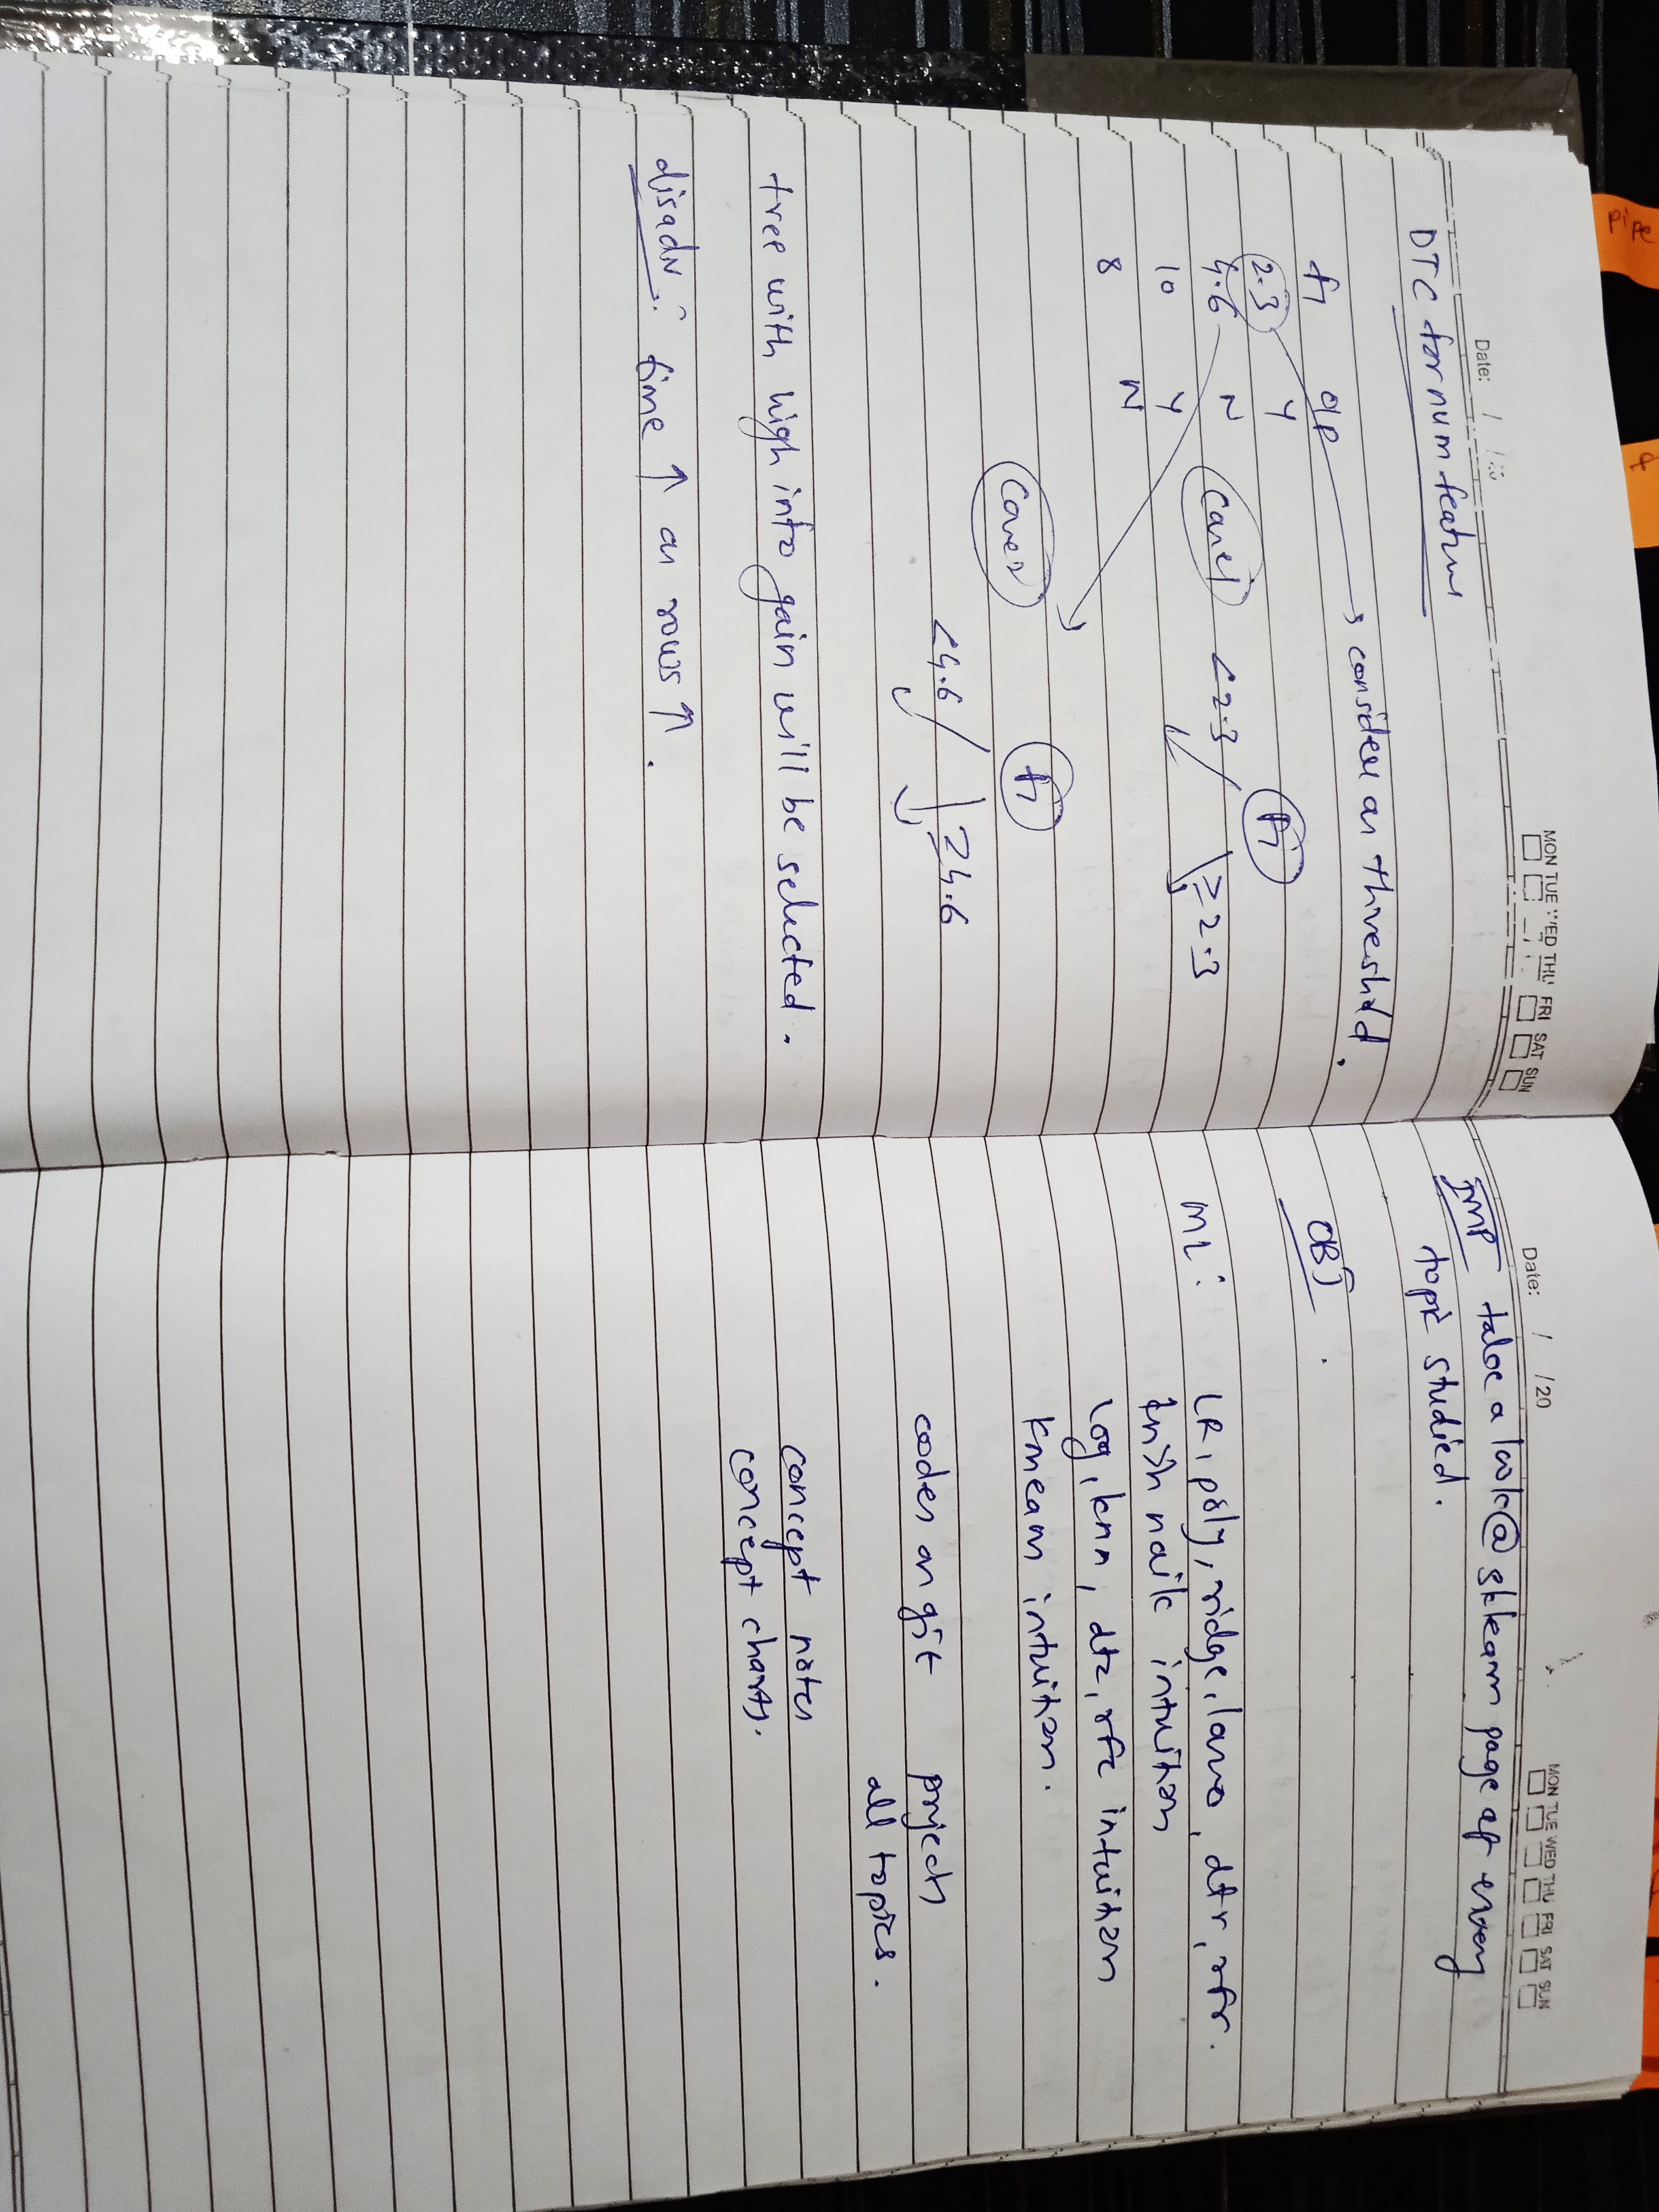 pipe
Date: / /20
MON TUE WED THU FRI SAT SUN
DTC for num featur
f1 op → consider as threshold.
2.3 Y
4.6 N
10 Y
8 N
case1
f1
<2.3 ≥2.3
case2
f1
<4.6 ≥4.6
tree with high info gain will be selected.
disadv: time ↑ as rows ↑.
Date: / /20
MON TUE WED THU FRI SAT SUN
IMP take a look @ sklearn page of every
topic studied.
OBJ
ML: LR, poly, ridge, lasso, dtr, rfr.
intuition
log, knn, dtc, rfc intuition
Kmean intuition.
codes on git project
all topics.
concept notes
concept charts.